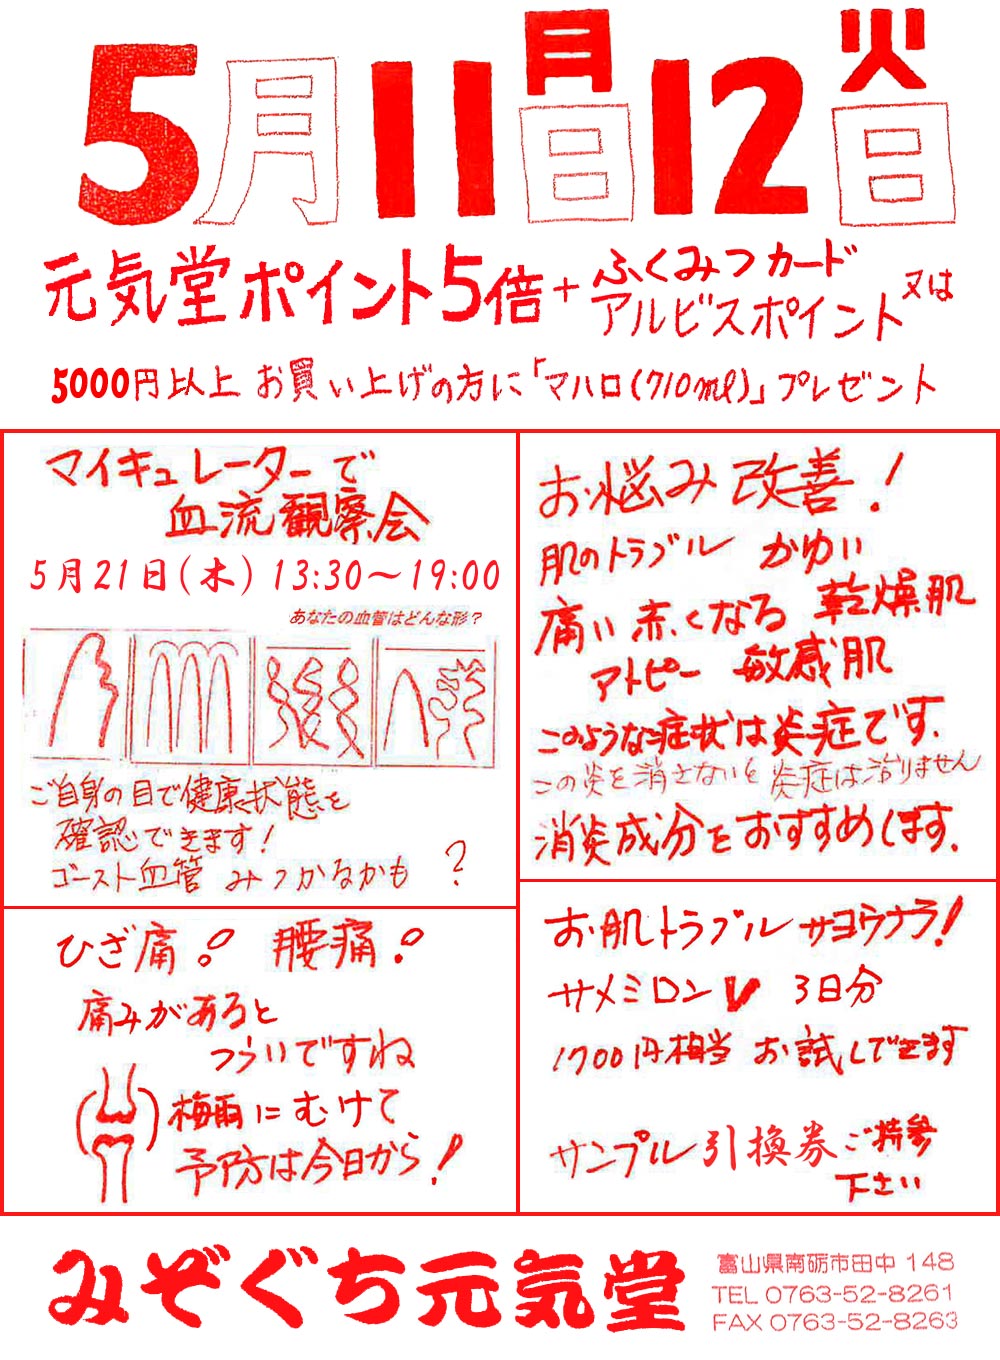 5月11月日12火日
元気堂ポイント5倍+ふくみつカード
アルビスポイント又は
5000円以上 お買い上げの方に「マハロ(710ml)」プレゼント
マイキュレーターで
血流観察会
5月21日(木) 13:30～19:00
あなたの血管はどんな形?
ご自身の目で健康状態を
確認できます!
ゴースト血管 みつかるかも ?
ひざ痛。 腰痛。
痛みがあると
つらいですね
梅雨にむけて
予防は今日から!
お悩み改善!
肌のトラブル かゆい
痛い 赤くなる 乾燥肌
アトピー 敏感肌
このような症状は炎症です.
この炎を消さないと炎症は治りません
消炎成分をおすすめします.
お肌トラブル サヨウナラ!
サメミロンV 3日分
1700円相当 お試しできます
サンプル引換券ご持参
下さい
みぞぐち元気堂
富山県南砺市田中 148
TEL 0763-52-8261
FAX 0763-52-8263